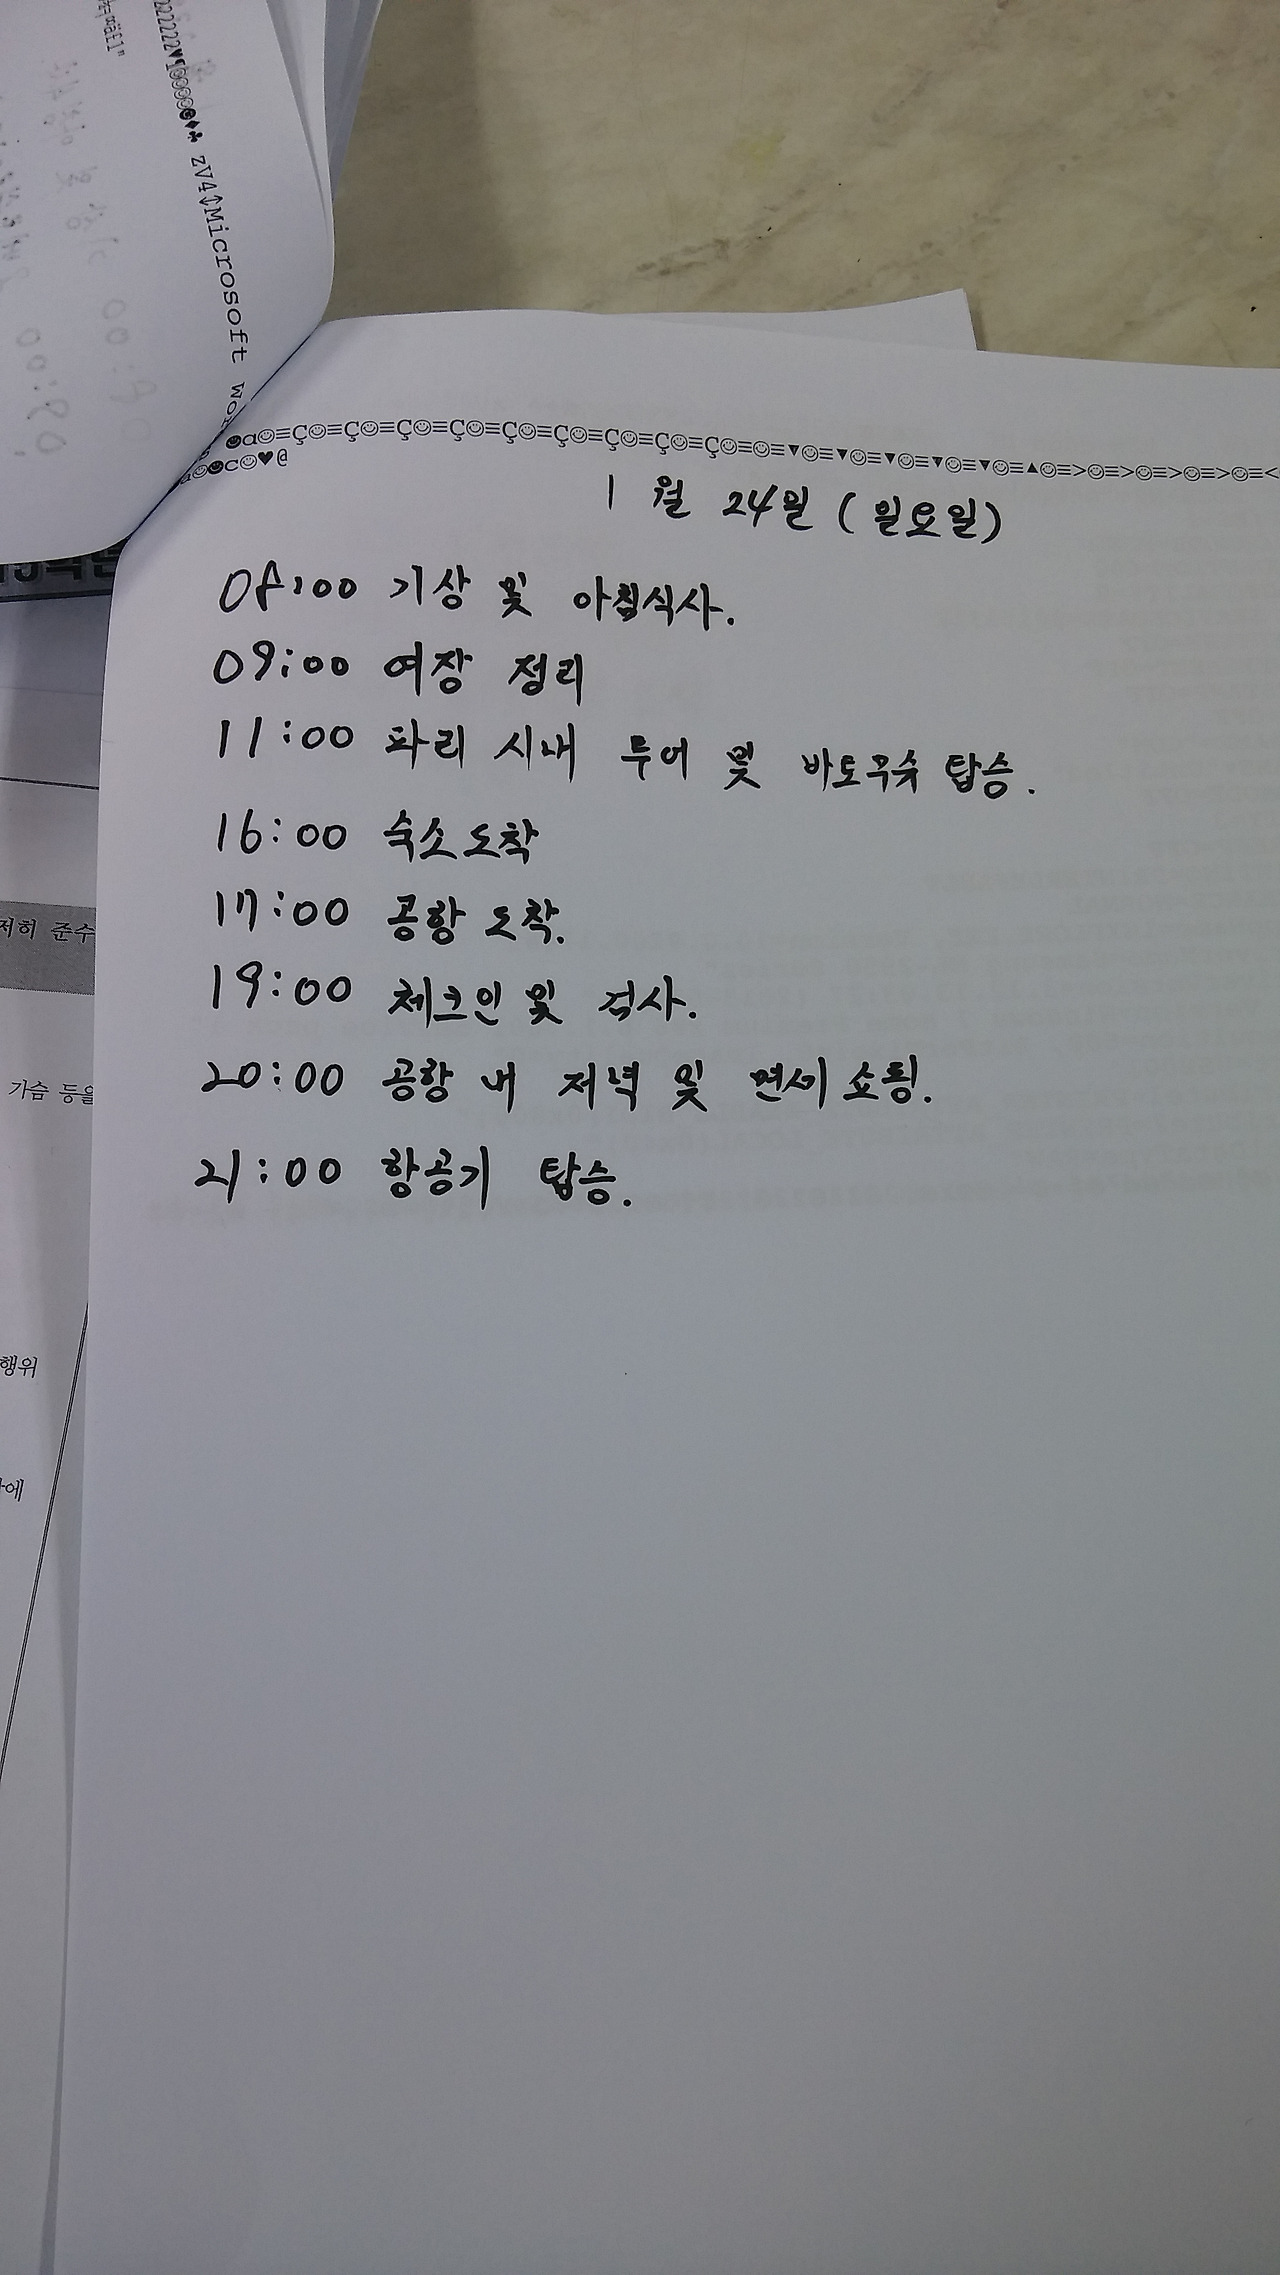 Microsoft Wo
1월 24일 (일요일)
08:00 기상 및 아침식사.
09:00 여장 정리
11:00 파리 시내 투어 및 바토무슈 탑승.
16:00 숙소도착
17:00 공항 도착.
19:00 체크인 및 검사.
20:00 공항 내 저녁 및 면세 쇼핑.
21:00 항공기 탑승.
저히 준수
가슴 등을
행위
에